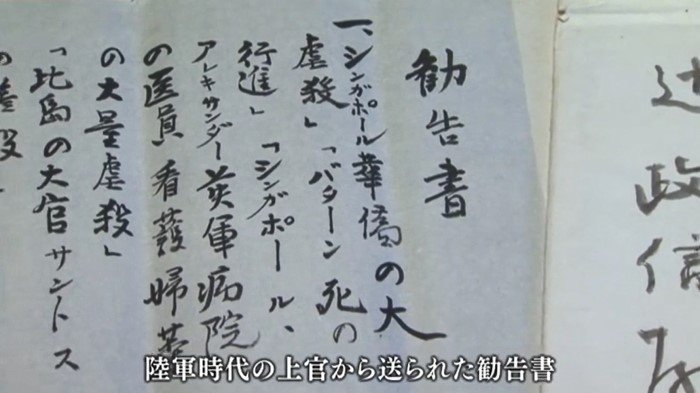 勧告書
一、シンガポール華僑の大
虐殺」「バターン死の
行進」「シンガポール、
アレキサンダー英軍病院
の医員看護婦等
の大量虐殺」
「比島の大官サントス
辻政信
陸軍時代の上官から送られた勧告書